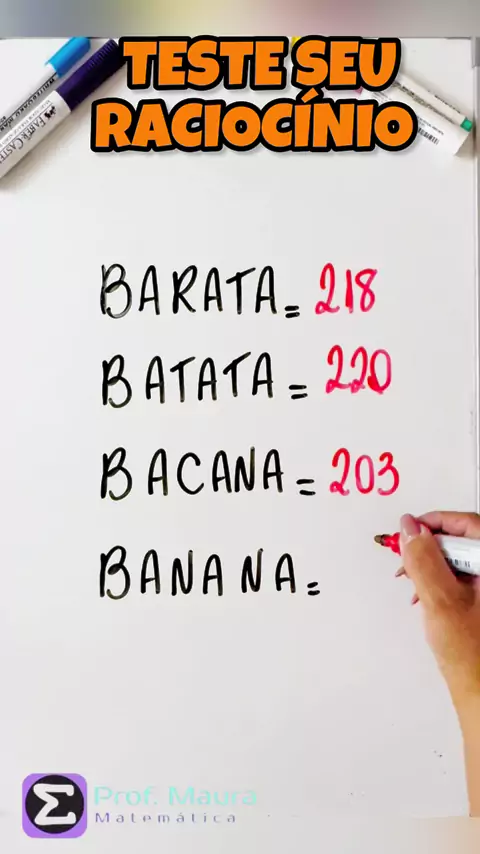 TESTE SEU
RACIOCÍNIO
BARATA = 218
BATATA = 220
BACANA = 203
BANANA =
Prof. Maura
Matemática